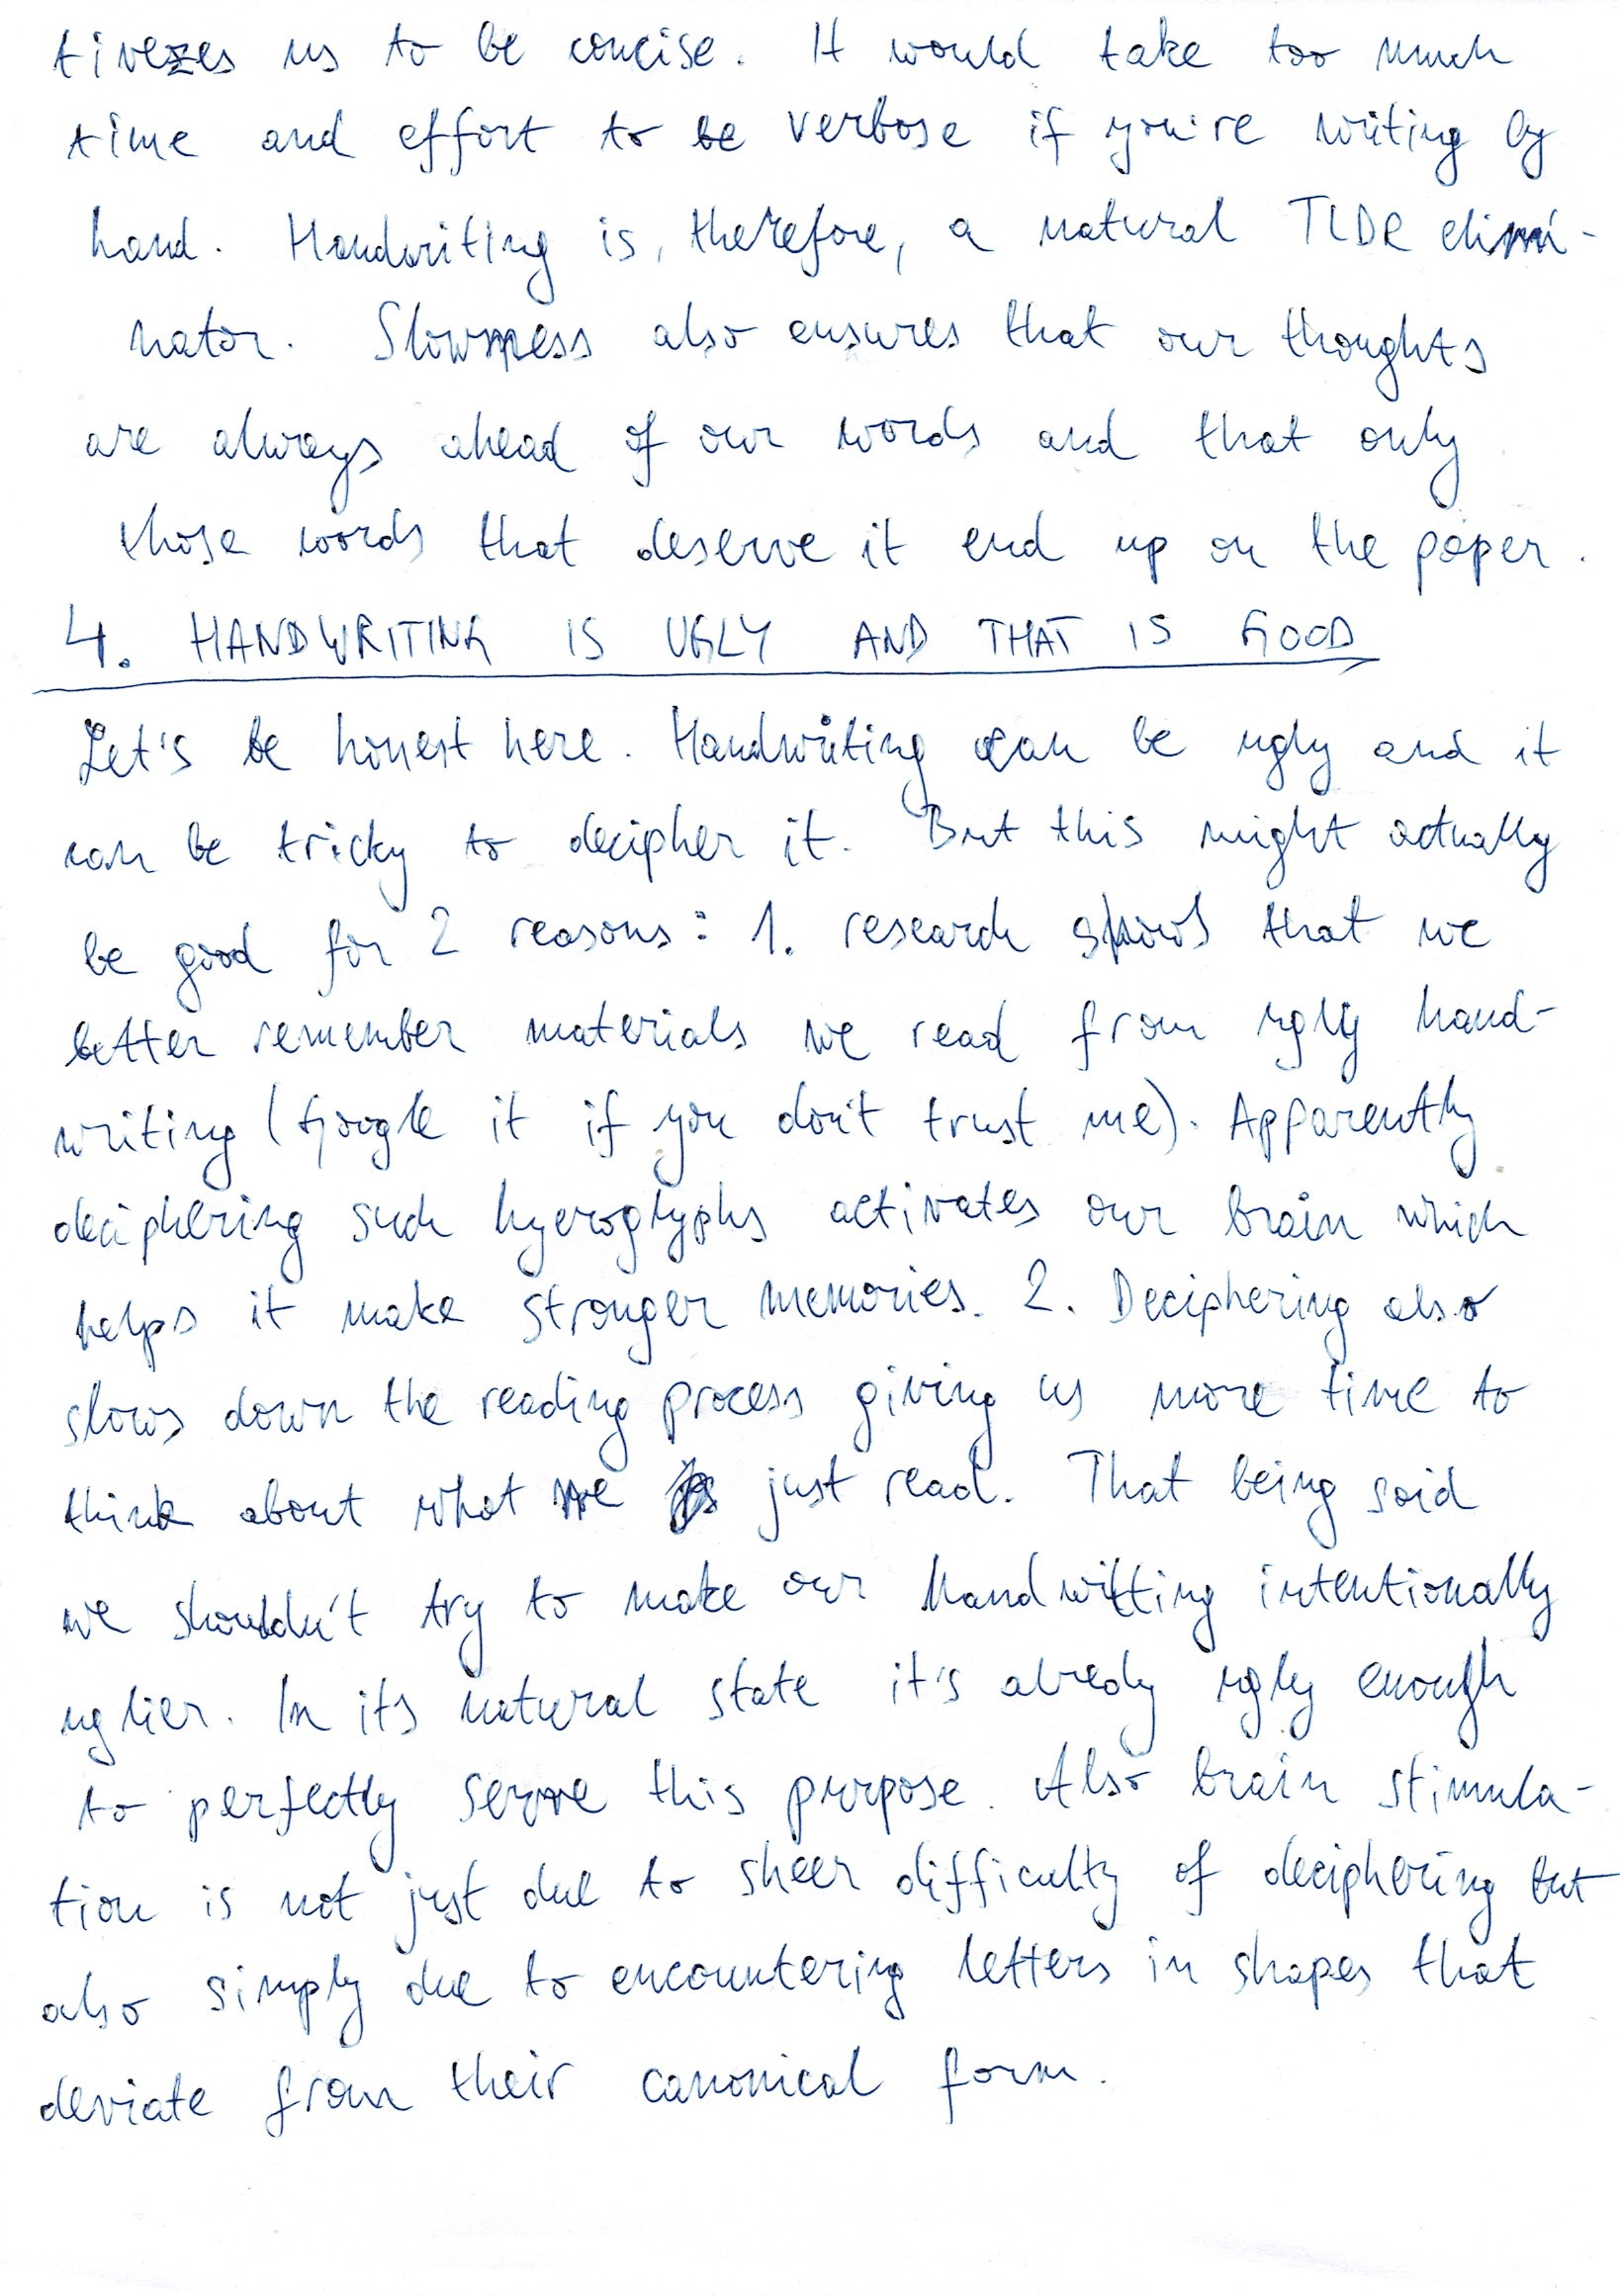 tivezes us to be concise. It would take too much
time and effort to be verbose if you're writing by
hand. Handwriting is, therefore, a natural TLDR elimi-
nator. Slowness also ensures that our thoughts
are always ahead of our words and that only
those words that deserve it end up on the paper.
4. HANDWRITING IS UGLY AND THAT IS GOOD
Let's be honest here. Handwriting can be ugly and it
can be tricky to decipher it. But this might actually
be good for 2 reasons: 1. research shows that we
better remember materials we read from ugly hand-
writing (Google it if you don't trust me). Apparently
deciphering such hyeroglyphs activates our brain which
helps it make stronger memories. 2. Deciphering also
slows down the reading process giving us more time to
think about what we just read. That being said
we shouldn't try to make our handwitting intentionally
uglier. In its natural state it's alredy ugly enough
to perfectly serve this purpose. Also brain stimula-
tion is not just due to sheer difficulty of deciphering but
also simply due to encountering letters in shapes that
deviate from their canonical form.